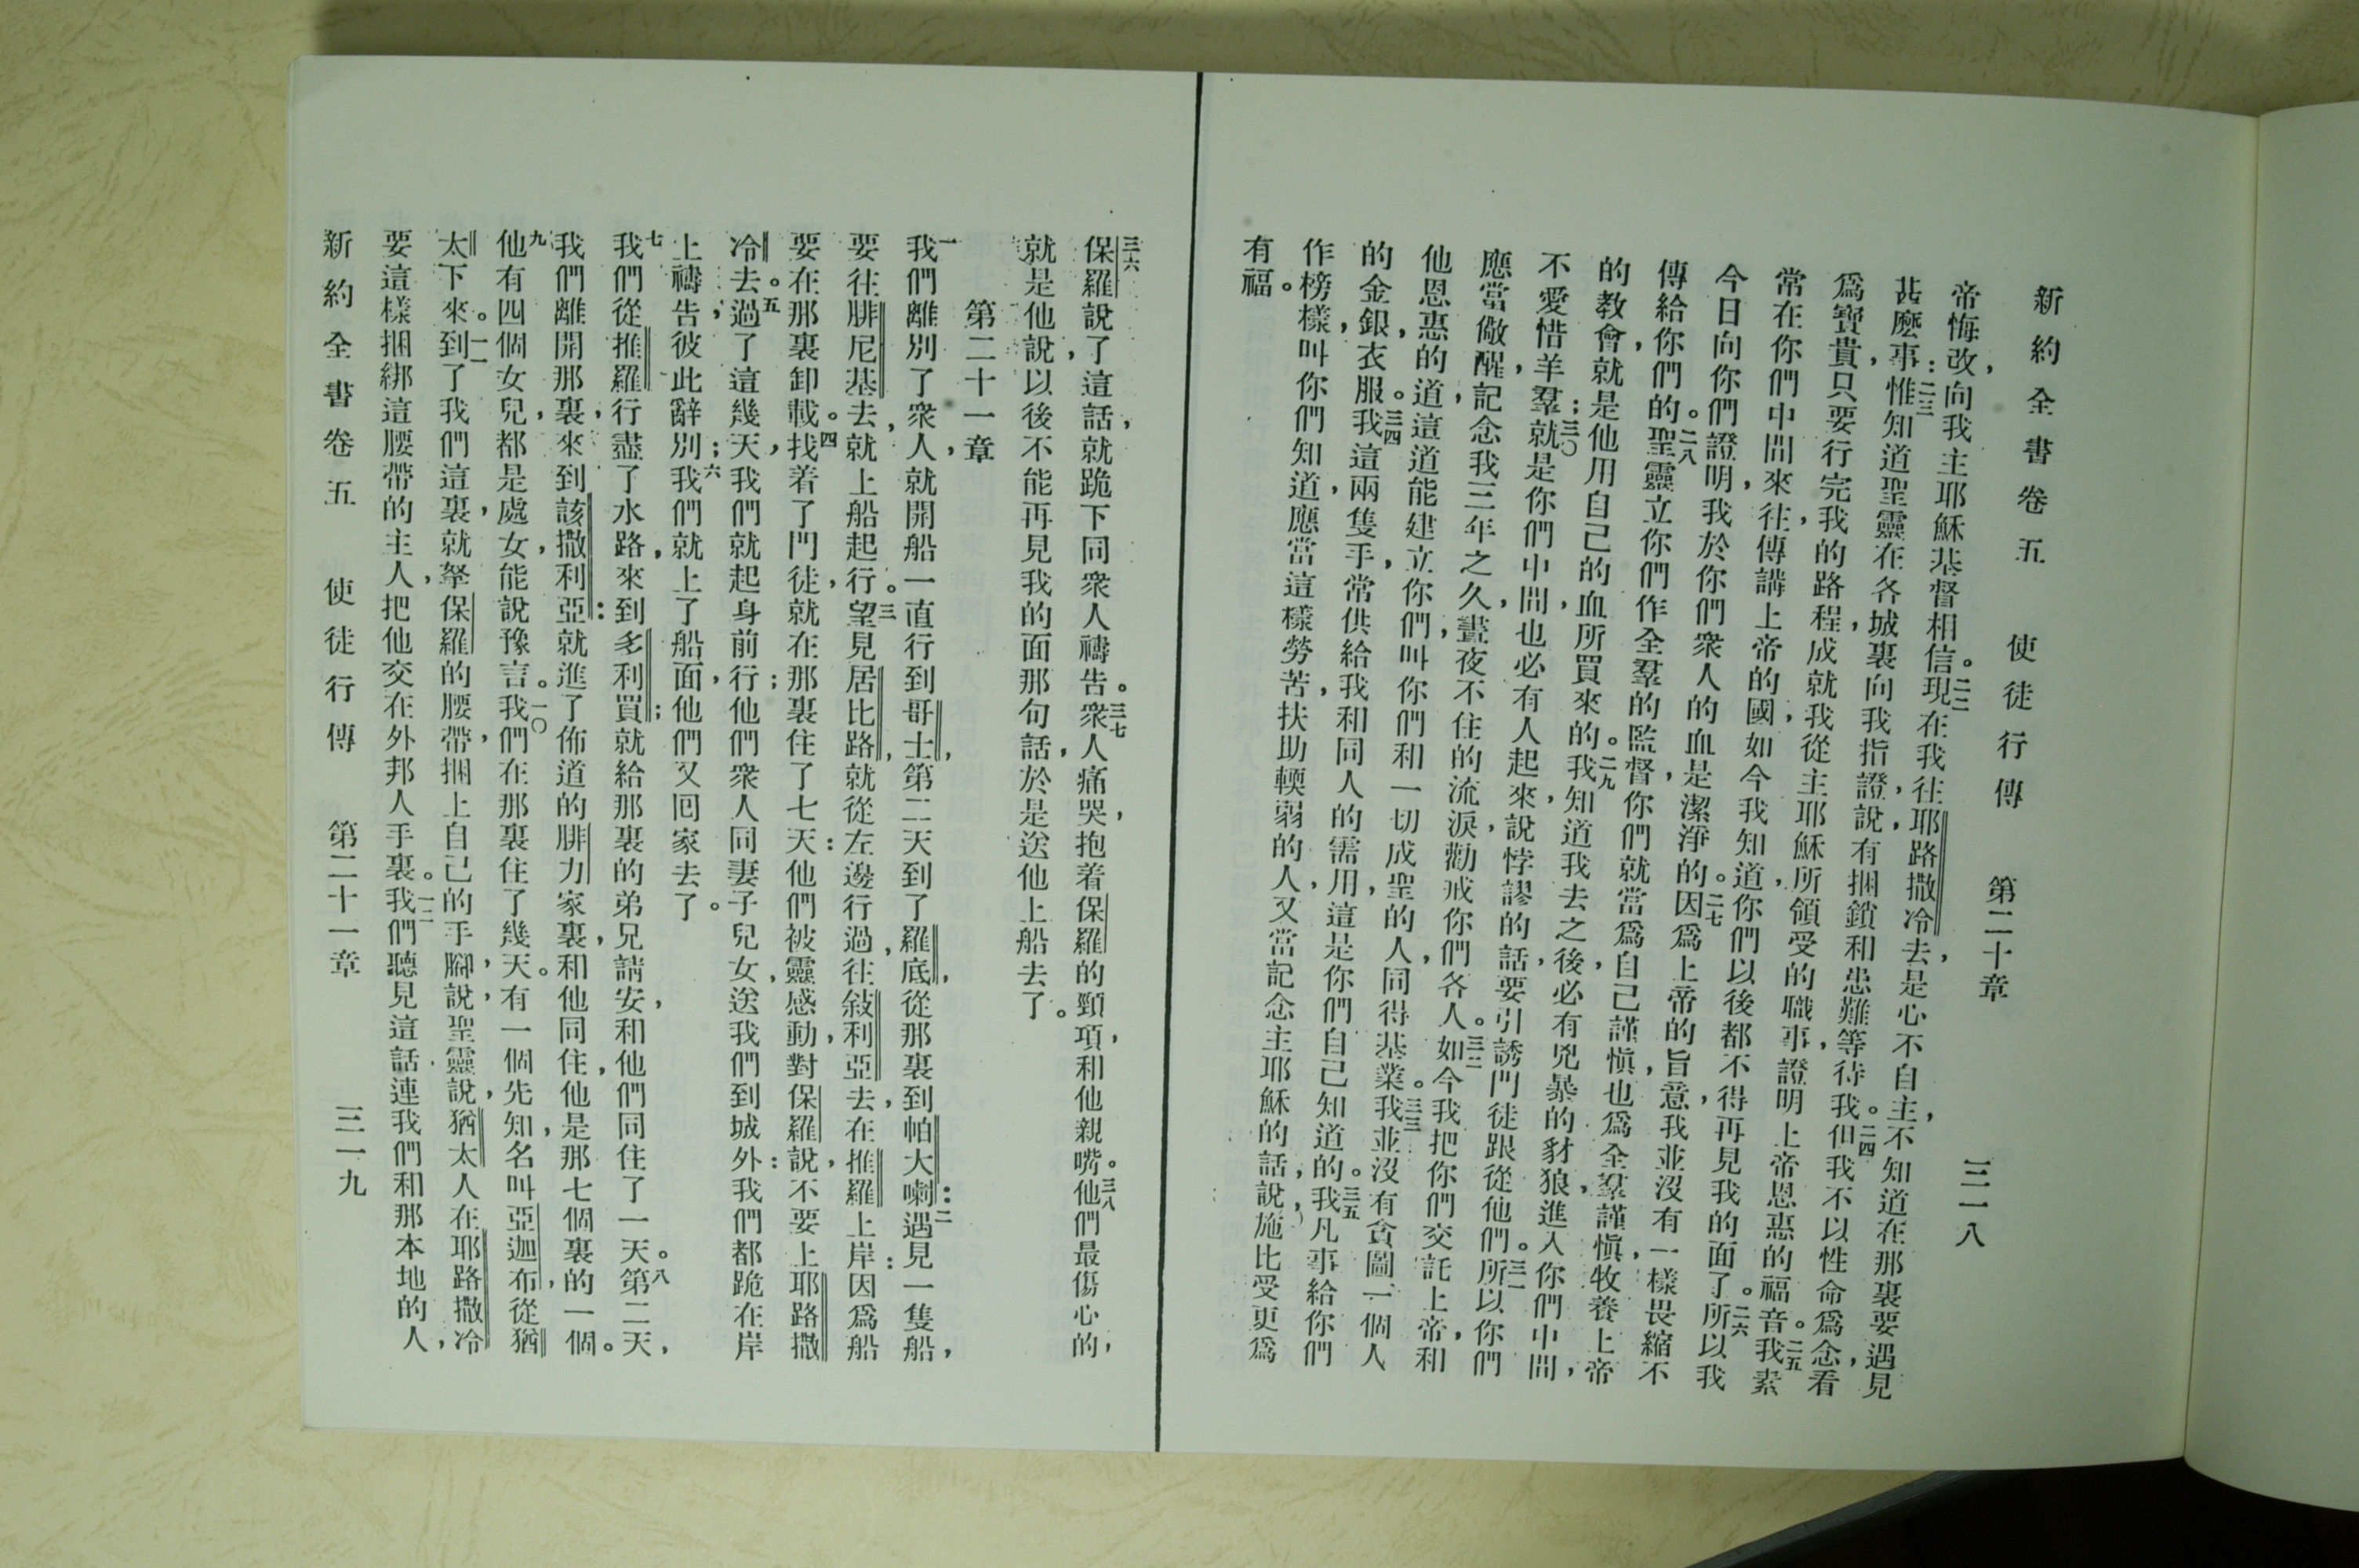 新約全書卷五 使徒行傳 第二十章 三一八
帝悔改，向我主耶穌基督相信。二二現在我往耶路撒冷去，是心不自主，不知道在那裏要遇見
甚麽事：二三惟知道聖靈在各城裏向我指證，說，有捆鎖和患難等待我。二四但我不以性命爲念，看
爲寶貴，只要行完我的路程，成就我從主耶穌所領受的職事，證明上帝恩惠的福音。二五我素
常在你們中間來往，傳講上帝的國，如今我知道你們以後都不得再見我的面了。二六所以我
今日向你們證明，我於你們衆人的血是潔淨的。二七因爲上帝的旨意，我並沒有一樣畏縮不
傳給你們的。二八聖靈立你們作全羣的監督，你們就當爲自己謹慎，也爲全羣謹慎，牧養上帝
的教會，就是他用自己的血所買來的。二九我知道我去之後，必有兇暴的豺狼，進入你們中間，
不愛惜羊羣；三〇就是你們中間，也必有人起來，說悖謬的話，要引誘門徒跟從他們。三一所以你們
應當儆醒，記念我三年之久，晝夜不住的流淚，勸戒你們各人。三二如今我把你們交託上帝，和
他恩惠的道，這道能建立你們，叫你們和一切成聖的人，同得基業。三三我並沒有貪圖一個人
的金，銀，衣服。三四我這兩隻手，常供給我和同人的需用，這是你們自己知道的。三五我凡事給你們
作榜樣，叫你們知道，應當這樣勞苦，扶助輭弱的人，又當記念主耶穌的話，說，施比受更爲
有福。
三六保羅說了這話，就跪下同衆人禱告。三七衆人痛哭，抱着保羅的頸項，和他親嘴。三八他們最傷心的，
就是他說以後不能再見我的面那句話，於是送他上船去了。
第二十一章
一我們離別了衆人，就開船一直行到哥士，第二天到了羅底，從那裏到帕大喇：二遇見一隻船，
要往腓尼基去，就上船起行。三望見居比路，就從左邊行過，往敍利亞去，在推羅上岸：因爲船
要在那裏卸載。四找着了門徒，就在那裏住了七天：他們被靈感動，對保羅說，不要上耶路撒
冷去。五過了這幾天，我們就起身前行；他們衆人同妻子兒女，送我們到城外：我們都跪在岸
上禱告；彼此辭別；六我們就上了船面，他們又回家去了。
七我們從推羅行盡了水路，來到多利買；就給那裏的弟兄請安，和他們同住了一天。八第二天，
我們離開那裏，來到該撒利亞：就進了佈道的腓力家裏，和他同住，他是那七個裏的一個。
九他有四個女兒，都是處女，能說豫言。一〇我們在那裏住了幾天。有一個先知，名叫亞迦布，從猶
太下來。一一到了我們這裏，就拏保羅的腰帶，捆上自己的手腳，說，聖靈說，猶太人在耶路撒冷，
要這樣捆綁這腰帶的主人，把他交在外邦人手裏。一二我們聽見這話，連我們和那本地的人，
新約全書卷五 使徒行傳 第二十一章 三一九